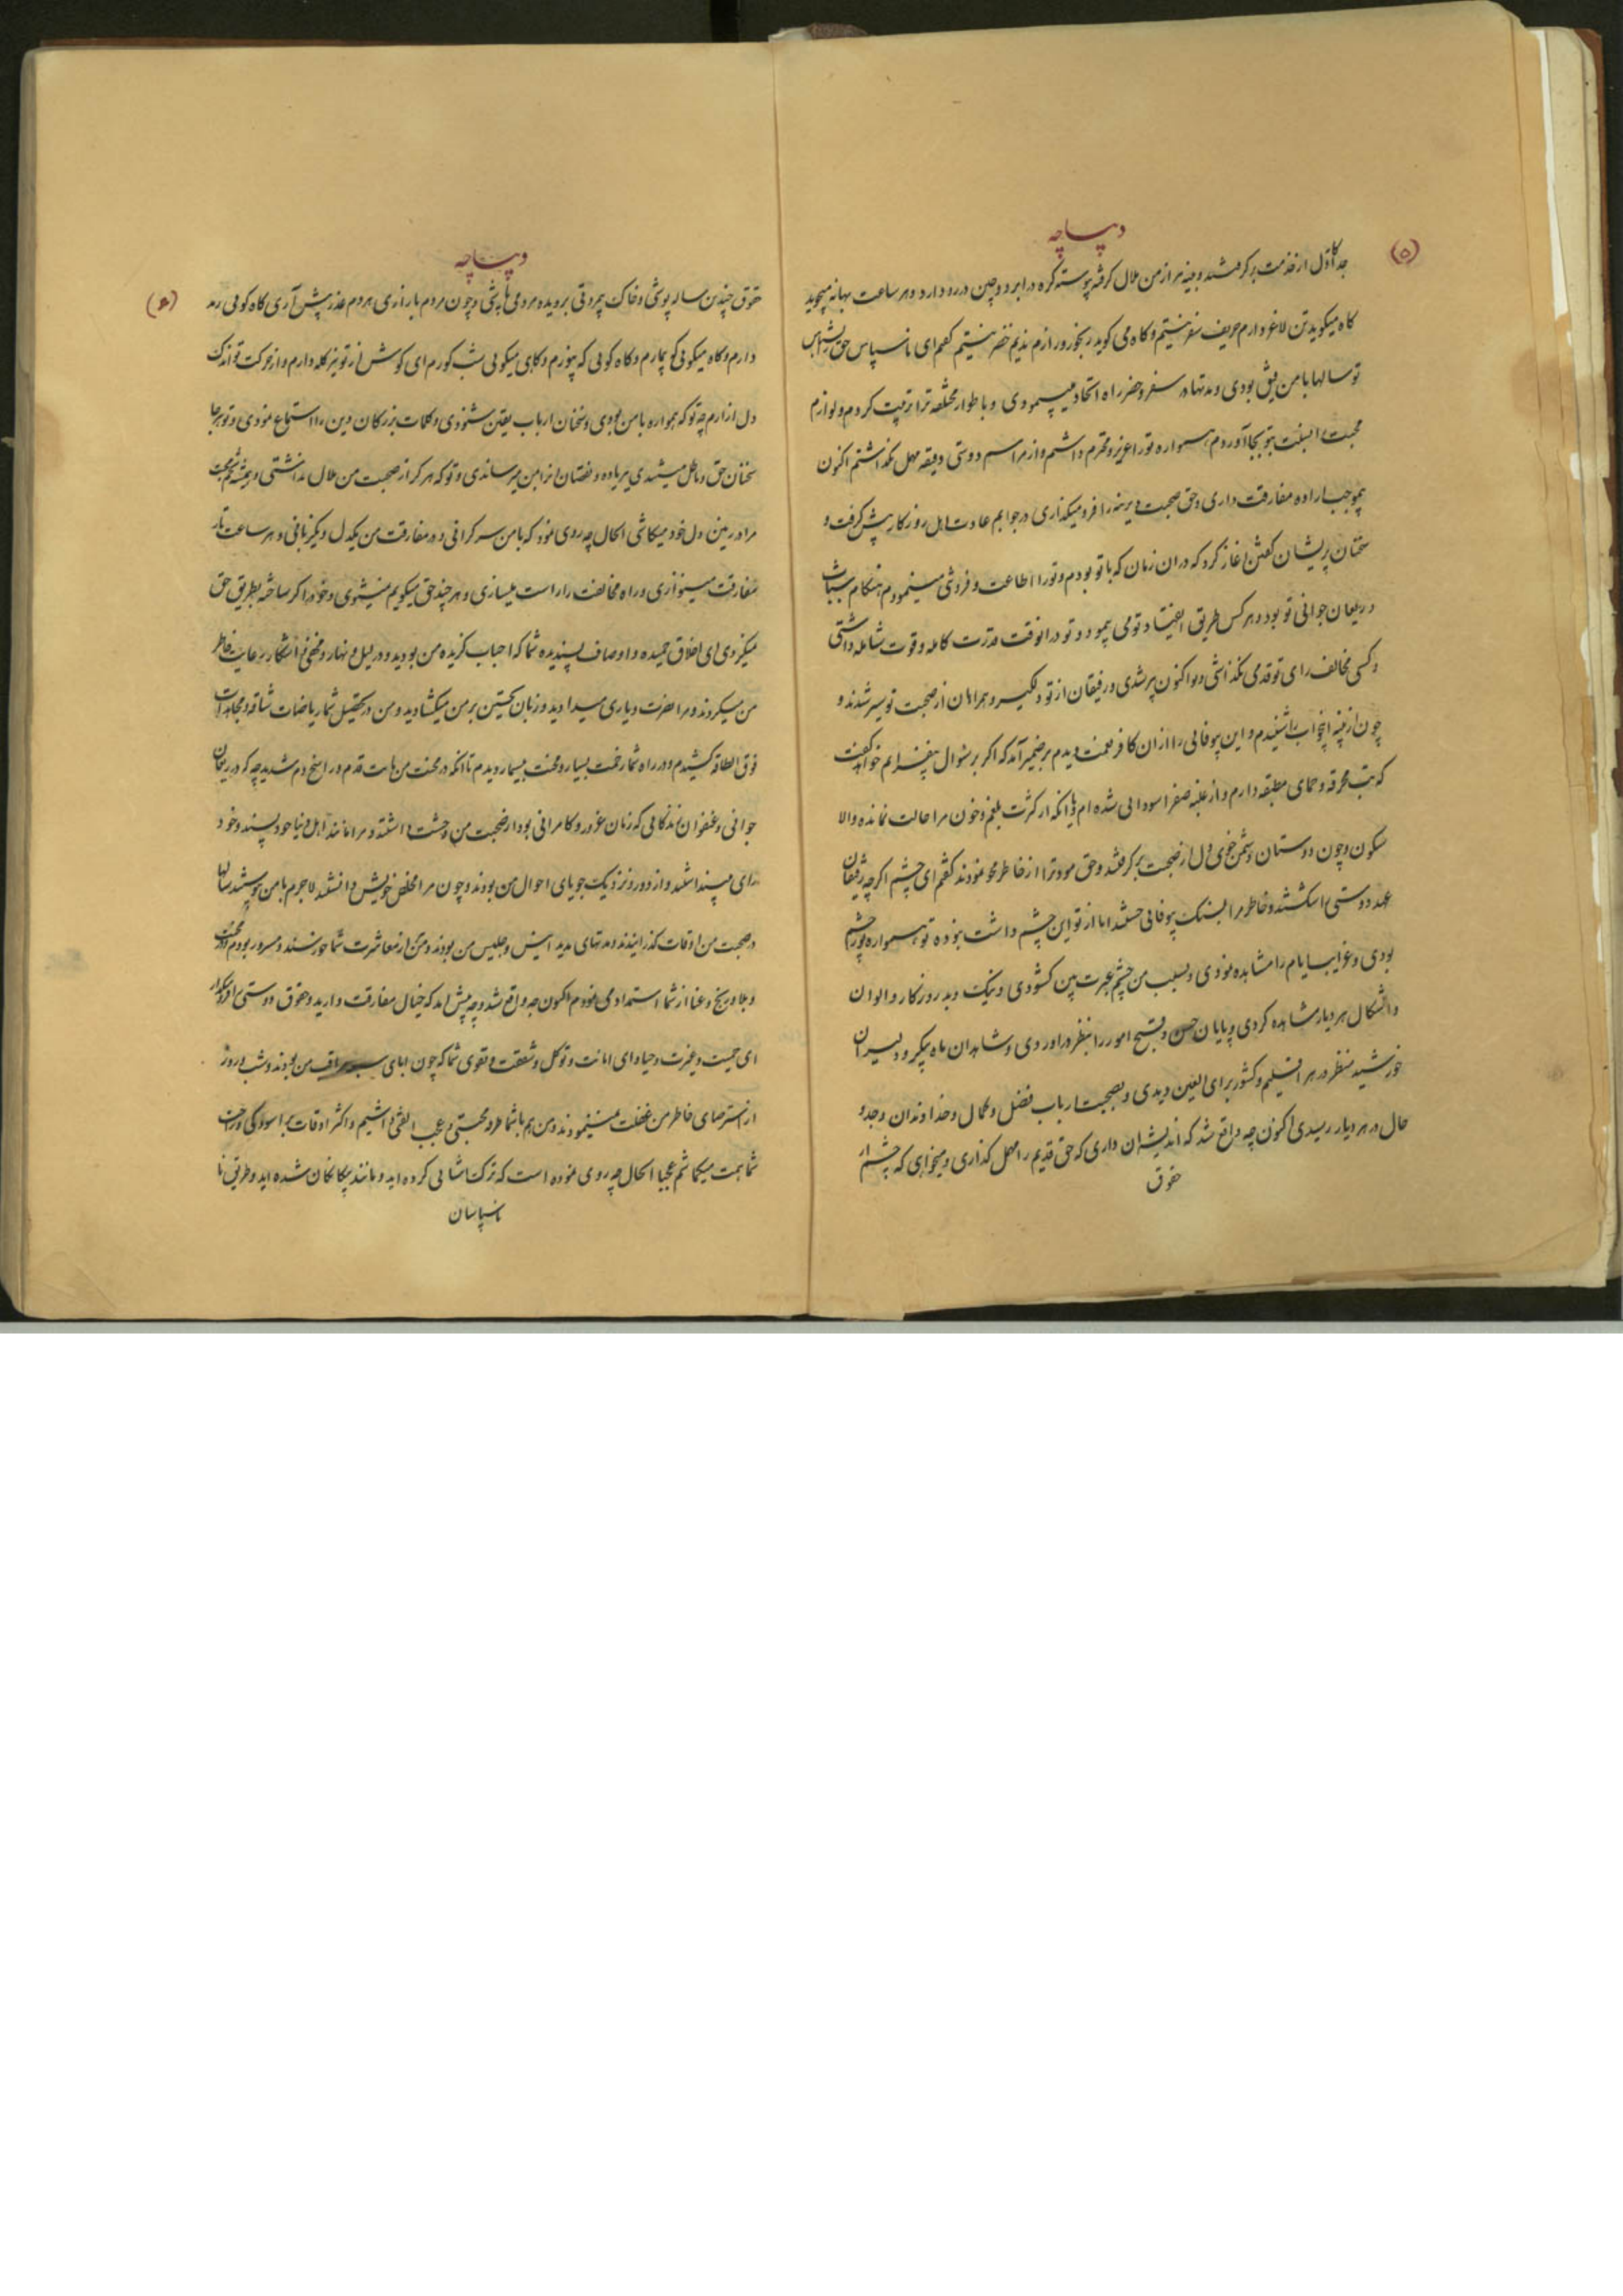 دیباچه
(۵)
جداکاول از خدمت برگرفتند و بنیه نیز از من ملال گرفته پیوسته گره در ابرو و چین در رو دارد و هر ساعت بهانه میجوید
کاه میکوید تن لاغر دارم حریف سفر نیستم و کاه می کوید رنجور و زارم ندیم حضر نیستم کفتم ای ناسپاس حق ناشناس
تو سالها با من رفیق بودی و مدتها در سفر و حضر راه اتحاد میپیمودی و با طوار مختلفه ترا تربیت کردم و لوازم
محبت را نسبت بتو بجا آوردم همواره تو را عزیز و محترم داشتم و از مراسم دوستی دقیقه مهمل نگذاشتم اکنون
بموجب اراده مفارقت داری و حق صحبت دیرینه را فرو میکذاری در جوابم عادت اهل روزکار پیش کرفت و
سخنان پریشان کفتن آغاز کرد که در ان زمان که با تو بودم و تو را اطاعت و فروتنی مینمودم هنکام شباب
و ریعان جوانی تو بود و هر کس طریق انقیاد تو می پیمود و تو در انوقت قدرت کامله و قوت شامله داشتی
و کسی مخالف رای تو قدمی نکذاشتی و اکنون پیر شدی و رفیقان از تو دلکیر و همراهان از صحبت تو سیر شدند و
چون از بنیه این جواب را شنیدم و این بیوفائی را از ان کافر نعمت دیدم بر ضمیر آمد که اکر بر سئوال بیفزایم خواهد کفت
که تب محرقه و حمای مطبقه دارم و از غلبه صفرا سودائی شده ام و یا انکه از کثرت بلغم و خون مرا حالت نمانده والا
سکون و چون دوستان دشمن خوی دل از صحبت برکرفتند و حق مودت را از خاطر محو نمودند کفتم ای چشم اکر چه رفیقان
عهد دوستی را شکستند و خاطر مرا بسنک بیوفائی خستند اما از تو این چشم داشت نبوده تو همواره نور چشم
بودی و غرایب ایام را مشاهده نمودی و بسبب من چشم عبرت بین کشودی و نیک و بد روزکار و الوان
و اشکال هر دیار مشاهده کردی و پایان حسن و قبیح امور را بنظر در اوردی و شاهدان ماه پیکر و دلبران
خورشید منظر در هر اقلیم و کشور برای العین دیدی و بصحبت ارباب فضل و کمال و خداوندان وجد و
حال در هر دیار رسیدی اکنون چه واقع شد که اندیشه ان داری که حق قدیم را مهمل کذاری و میخواهی که چشم از
حقوق
دیباچه
(۶)
حقوق چندین ساله پوشی و خاک بیمروتی بر دیده مردمی پاشی و چون مردم بازاری هر دم عذر پیش آری کاه کوئی رمد
دارم و کاه میکوئی کو بیمارم و کاه کوئی که بیزورم و کاهی میکوئی شب کورم ای کوش از تو نیز کله دارم و از حرکت تو اندک
دل ازارم چه تو که همواره با من بودی و سخنان ارباب یقین شنودی و کلمات بزرکان دین را استماع نمودی و تو هر جا
سخنان حق و باطل میشنیدی بی زیاده و نقصان انرا بمن میرساندی و تو که هرکز از صحبت من ملال نداشتی و همیشه تخم محبت
مرا در زمین دل خود میکاشتی الحال چه روی نمود که با من سر کرانی و در مفارقت من یکدل و یکزبانی و هر ساعت تار
مفارقت مینوازی و راه مخالفت را راست میسازی و هر چند حق میکویم نمیشنوی و خود را کر ساخته بطریق حق
نمیکروی ای اخلاق حمیده و اوصاف پسندیده شما که احباب کزیده من بودید و در لیل و نهار و مخفی و اشکار رعایت خاطر
من میکردند و مرا نصرت و یاری میدادید و زبان تحسین بر من میکشادید و من در تحصیل شما ریاضات شاقه و مجاهدات
فوق الطاقه کشیدم و در راه شما زحمت بسیار و محنت بیشمار دیدم تا انکه در محنت من ثابت قدم و راسخ دم شدید چه که در ریعان
جوانی و عنفوان زندکانی که زمان غرور و کامرانی بود از صحبت من وحشت داشتند و مرا مانند اهل دنیا خود پسند و خود
رای میپنداشتند و از دور و نزدیک جویای احوال من بودند و چون مرا مخلص خویش دانستند لاجرم با من پیوستند سالها
در صحبت من اوقات کذرانیدند و مدتهای مدید انیس و جلیس من بودند و من از معاشرت شما خورسند و مسرور بودم و در محنت
و بلا و رنج و عنا از شما استمداد می نمودم اکنون چه واقع شد و چه پیش امد که خیال مفارقت دارید و حقوق دوستی را فرو میکذارید
ای حمیت و غیرت و حیا و ای امانت و توکل و شفقت و تقوی شما که چون ابای من بودند و شب و روز
از استرضای خاطر من غفلت نمینمودند و من هم با شما طرفه محبتی و عجب الفتی داشتیم و اکثر اوقات بر اسودکی و راحت
شما همت میکماشتم عجبا الحال چه روی نموده است که ترک اشنائی کرده اید و مانند بیکانکان شده اید و طریق نا
ناسپاسان